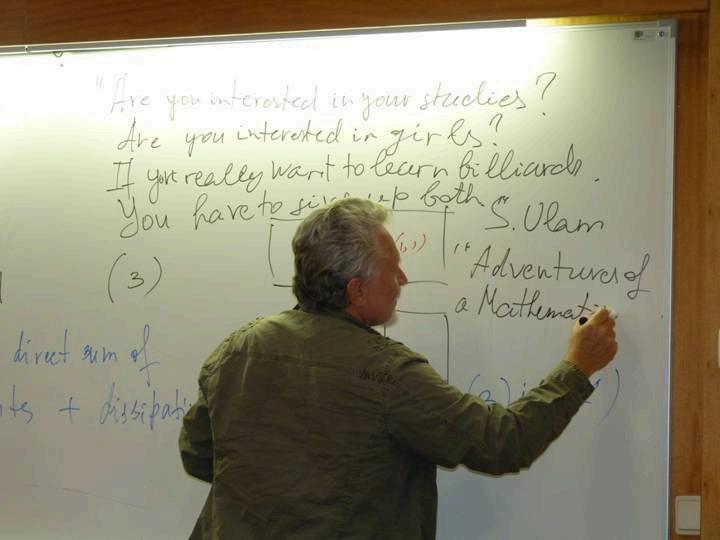 "Are you interested in your studies?
Are you interested in girls?
If you really want to learn billiards.
You have to give up both"
S. Ulam
"Adventures of
a Mathemati
(3)
direct sum of
+ dissipati